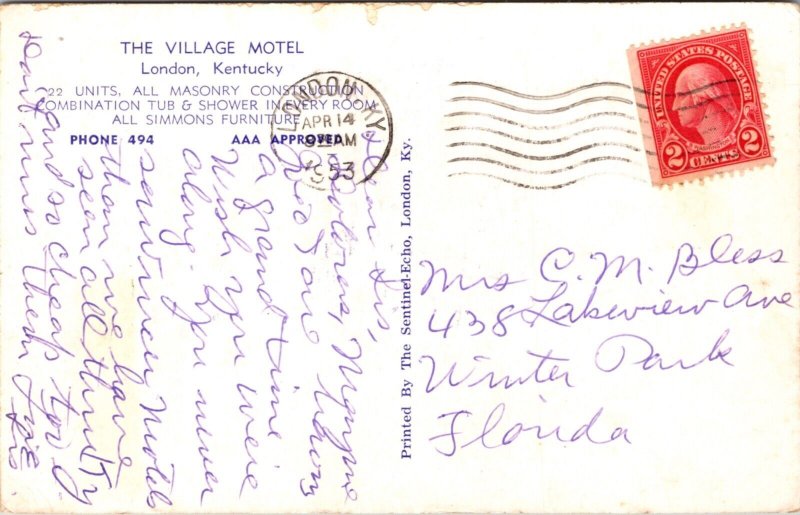 THE VILLAGE MOTEL
London, Kentucky
22 UNITS, ALL MASONRY CONSTRUCTION
COMBINATION TUB & SHOWER IN EVERY ROOM
ALL SIMMONS FURNITURE
PHONE 494 AAA APPROVED
LONDON KY.
APR 14
9 AM
1953
UNITED STATES POSTAGE
WASHINGTON
2 CENTS 2
Dear Sis,
Dolores, Mayme
and I are having
a grand time
Wish you were
along. You never
saw men Motels
than we have
seen all thru Ky
and so cheap too
Dait runs them
Love
Sis.
Printed By The Sentinel-Echo, London, Ky.
Mrs C. M. Bless
438 Lakeview Ave
Winter Park
Florida